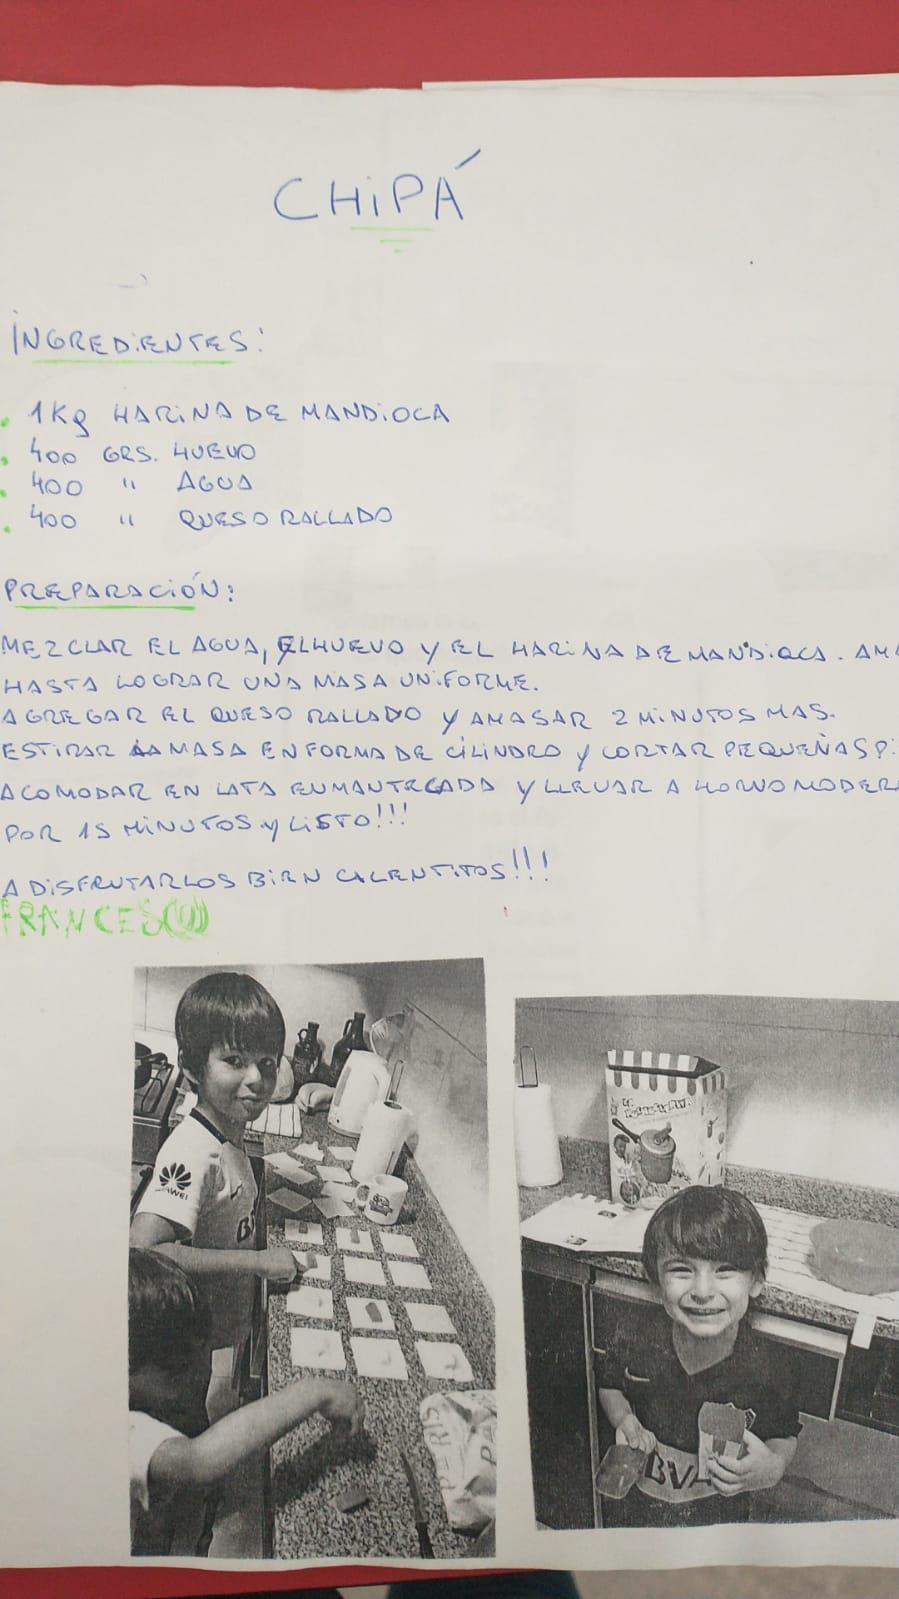 CHiPÁ
iNGREDiENTES:
. 1Kg HARiNA DE MANDiOCA
. 400 GRS. HUEVO
. 400 " AGUA
. 400 " QUESO RALLADO
PREPARACiÓN:
MEZCLAR EL AGUA, EL HUEVO Y EL HARiNA DE MANDiOCA. AM
HASTA LOGRAR UNA MASA UNiFORME.
AGREGAR EL QUESO RALLADO Y AMASAR 2 MiNUTOS MAS.
ESTiRAR LA MASA EN FORMA DE CiLiNDRO Y CORTAR PEQUEÑAS P
ACOMODAR EN LATA ENMANTECADA Y LLEVAR A HORNO MODER
POR 15 MiNUTOS Y LiSTO!!!
A DiSFRUTARLOS BiEN CALENTiTOS!!!
FRANCESCO
BBVA